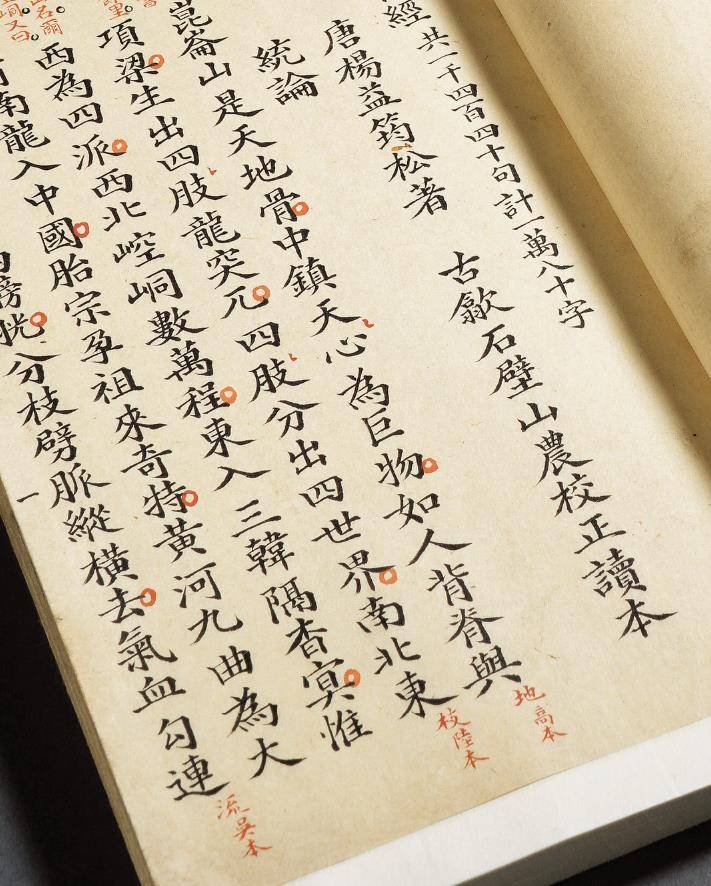 經 共一千四百四十句 計一萬八十字
唐楊益筠松著 古歙石壁山農校正讀本
統論
崑崙山是天地骨中鎮天心為巨物如人背脊與
地高本
項梁生出四肢龍突兀四肢分出四世界南北東
校陸本
西為四派西北崆峒數萬程東入三韓隔杳冥惟
南龍入中國胎宗孕祖來奇特黃河九曲為大
膀胱分枝劈脈縱橫去氣血勾連
流吳本
一
里
名爾
峒又曰